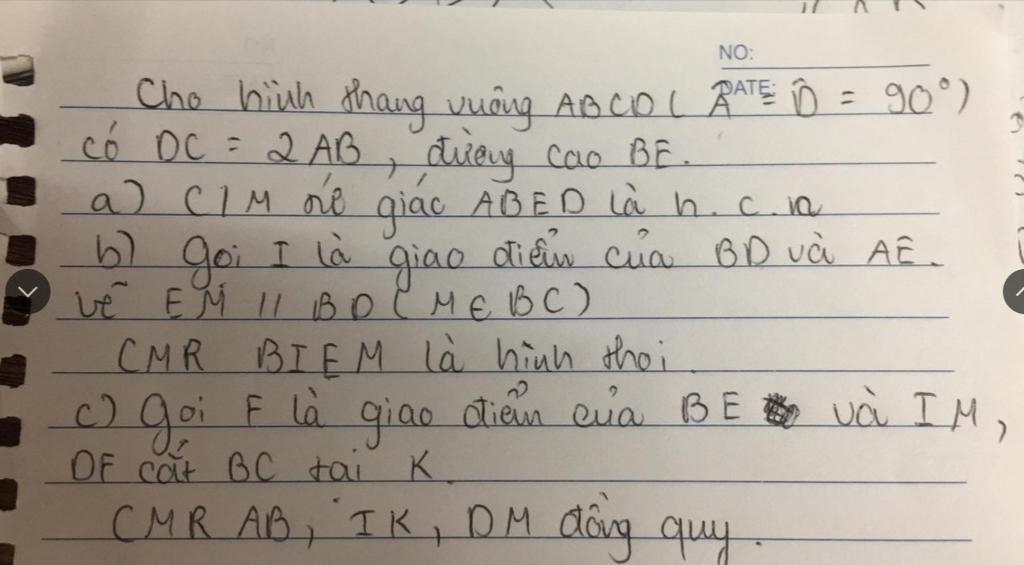 NO:
DATE:
Cho hình thang vuông ABCD ( Â = D̂ = 90°)
có DC = 2AB, đường cao BE.
a) C/M tứ giác ABED là h.c.n
b) gọi I là giao điểm của BD và AE.
vẽ EM // BD ( M ∈ BC)
CMR BIEM là hình thoi.
c) gọi F là giao điểm của BE và IM,
DF cắt BC tại K.
CMR AB, IK, DM đồng quy.